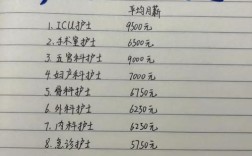 平均月薪
1. ICU护士 9500元
2. 手术室护士 6500元
3. 五官科护士 9000元
4. 妇产科护士 7000元
5. 骨科护士 6750元
6. 外科护士 6250元
7. 内科护士 6250元
8. 急诊护士 5750元